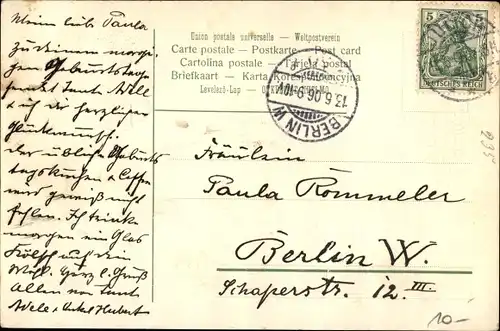 Meine liebe Paula
zu Deinem morgi-
gen Geburtstage
sendet Tante Adele
u. ich die herzlichsten
Glückwünsche.
der übliche Geburts
tagskuchen u. Caffee
wird gewiß nicht
fehlen. Ich trinke
morgen ein Glas
Kölsch auf Dein
Wohl. Herzl. Gruß
Allen von Tante
Adele u. Onkel Hubert
Union postale universelle — Weltpostverein
Carte postale — Postkarte — Post card
Cartolina postale — Tarjeta postal
Briefkaart — Karta Korespondencyjna
Levelező-Lap —
5 5
DEUTSCHES REICH
BERLIN W
13.6.06.9-10
Fräulein
Paula Rommeler
Berlin W.
Schaperstr. 12 III.
10-